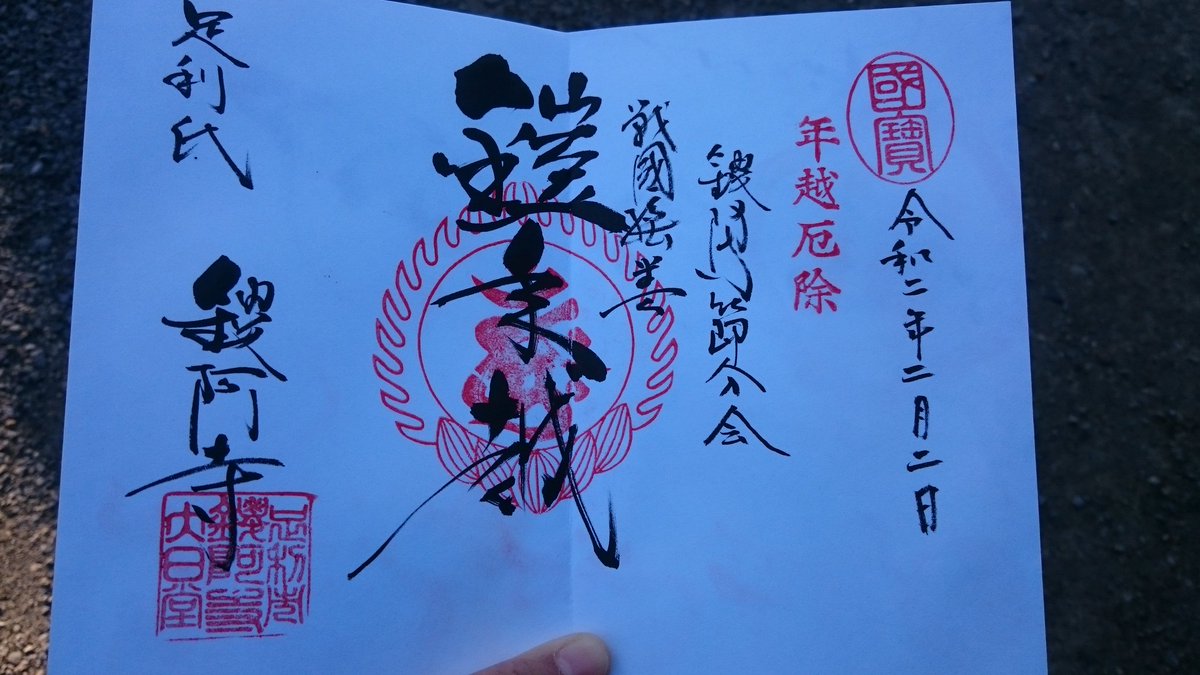 國寶
令和二年二月二日
年越厄除
鑁阿寺節分会
戦國絵巻
鎧年越
足利氏
鑁阿寺
足利市
鑁阿寺
大日堂